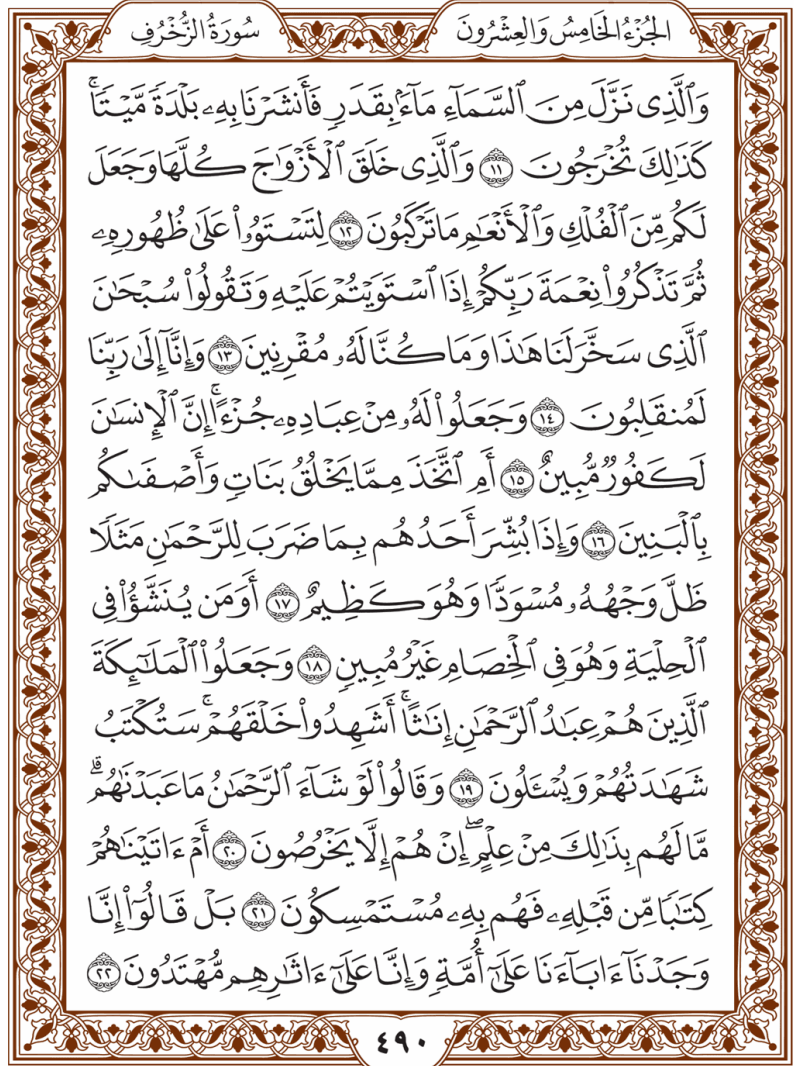 الجُزْءُ الخَامِسُ وَالعِشْرُونَ
سُورَةُ الزُّخْرُفِ
وَٱلَّذِى نَزَّلَ مِنَ ٱلسَّمَآءِ مَآءَۢ بِقَدَرٍ فَأَنشَرْنَا بِهِۦ بَلْدَةً مَّيْتًاۚ
كَذَٰلِكَ تُخْرَجُونَ ١١ وَٱلَّذِى خَلَقَ ٱلْأَزْوَٰجَ كُلَّهَا وَجَعَلَ
لَكُم مِّنَ ٱلْفُلْكِ وَٱلْأَنْعَٰمِ مَا تَرْكَبُونَ ١٢ لِتَسْتَوُۥا۟ عَلَىٰ ظُهُورِهِۦ
ثُمَّ تَذْكُرُوا۟ نِعْمَةَ رَبِّكُمْ إِذَا ٱسْتَوَيْتُمْ عَلَيْهِ وَتَقُولُوا۟ سُبْحَٰنَ
ٱلَّذِى سَخَّرَ لَنَا هَٰذَا وَمَا كُنَّا لَهُۥ مُقْرِنِينَ ١٣ وَإِنَّآ إِلَىٰ رَبِّنَا
لَمُنقَلِبُونَ ١٤ وَجَعَلُوا۟ لَهُۥ مِنْ عِبَادِهِۦ جُزْءًاۚ إِنَّ ٱلْإِنسَٰنَ
لَكَفُورٌ مُّبِينٌ ١٥ أَمِ ٱتَّخَذَ مِمَّا يَخْلُقُ بَنَاتٍ وَأَصْفَىٰكُم
بِٱلْبَنِينَ ١٦ وَإِذَا بُشِّرَ أَحَدُهُم بِمَا ضَرَبَ لِلرَّحْمَٰنِ مَثَلًا
ظَلَّ وَجْهُهُۥ مُسْوَدًّا وَهُوَ كَظِيمٌ ١٧ أَوَمَن يُنَشَّؤُا۟ فِى
ٱلْحِلْيَةِ وَهُوَ فِى ٱلْخِصَامِ غَيْرُ مُبِينٍ ١٨ وَجَعَلُوا۟ ٱلْمَلَٰٓئِكَةَ
ٱلَّذِينَ هُمْ عِبَٰدُ ٱلرَّحْمَٰنِ إِنَٰثًاۚ أَشَهِدُوا۟ خَلْقَهُمْۚ سَتُكْتَبُ
شَهَٰدَتُهُمْ وَيُسْـَٔلُونَ ١٩ وَقَالُوا۟ لَوْ شَآءَ ٱلرَّحْمَٰنُ مَا عَبَدْنَٰهُمۗ
مَّا لَهُم بِذَٰلِكَ مِنْ عِلْمٍۖ إِنْ هُمْ إِلَّا يَخْرُصُونَ ٢٠ أَمْ ءَاتَيْنَٰهُمْ
كِتَٰبًا مِّن قَبْلِهِۦ فَهُم بِهِۦ مُسْتَمْسِكُونَ ٢١ بَلْ قَالُوٓا۟ إِنَّا
وَجَدْنَآ ءَابَآءَنَا عَلَىٰٓ أُمَّةٍ وَإِنَّا عَلَىٰٓ ءَاثَٰرِهِم مُّهْتَدُونَ ٢٢
٤٩٠